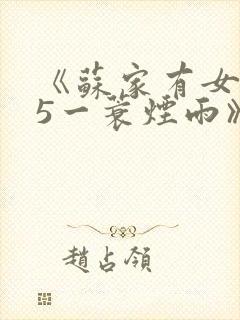 《蘇家有女
5一蓑煙雨》
趙占領